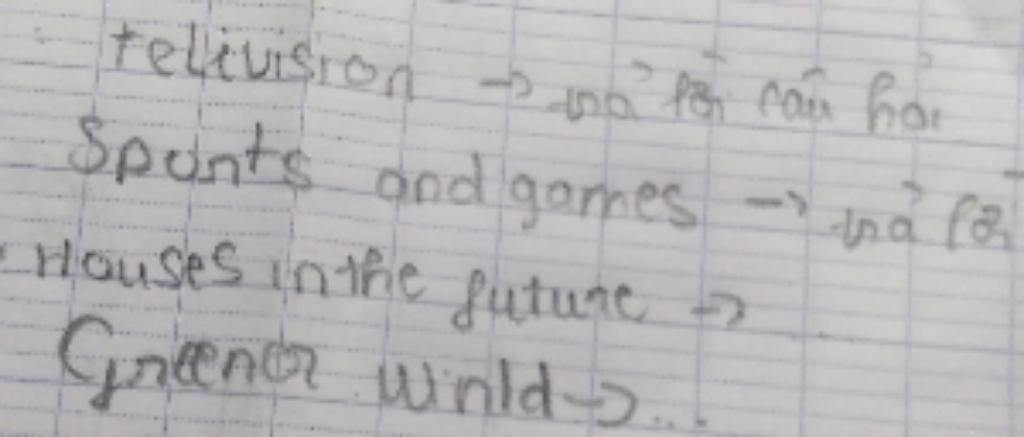 telivision → trả lời câu hỏi
Sports and games → trả lời
Houses in the future →
Greener World → ...